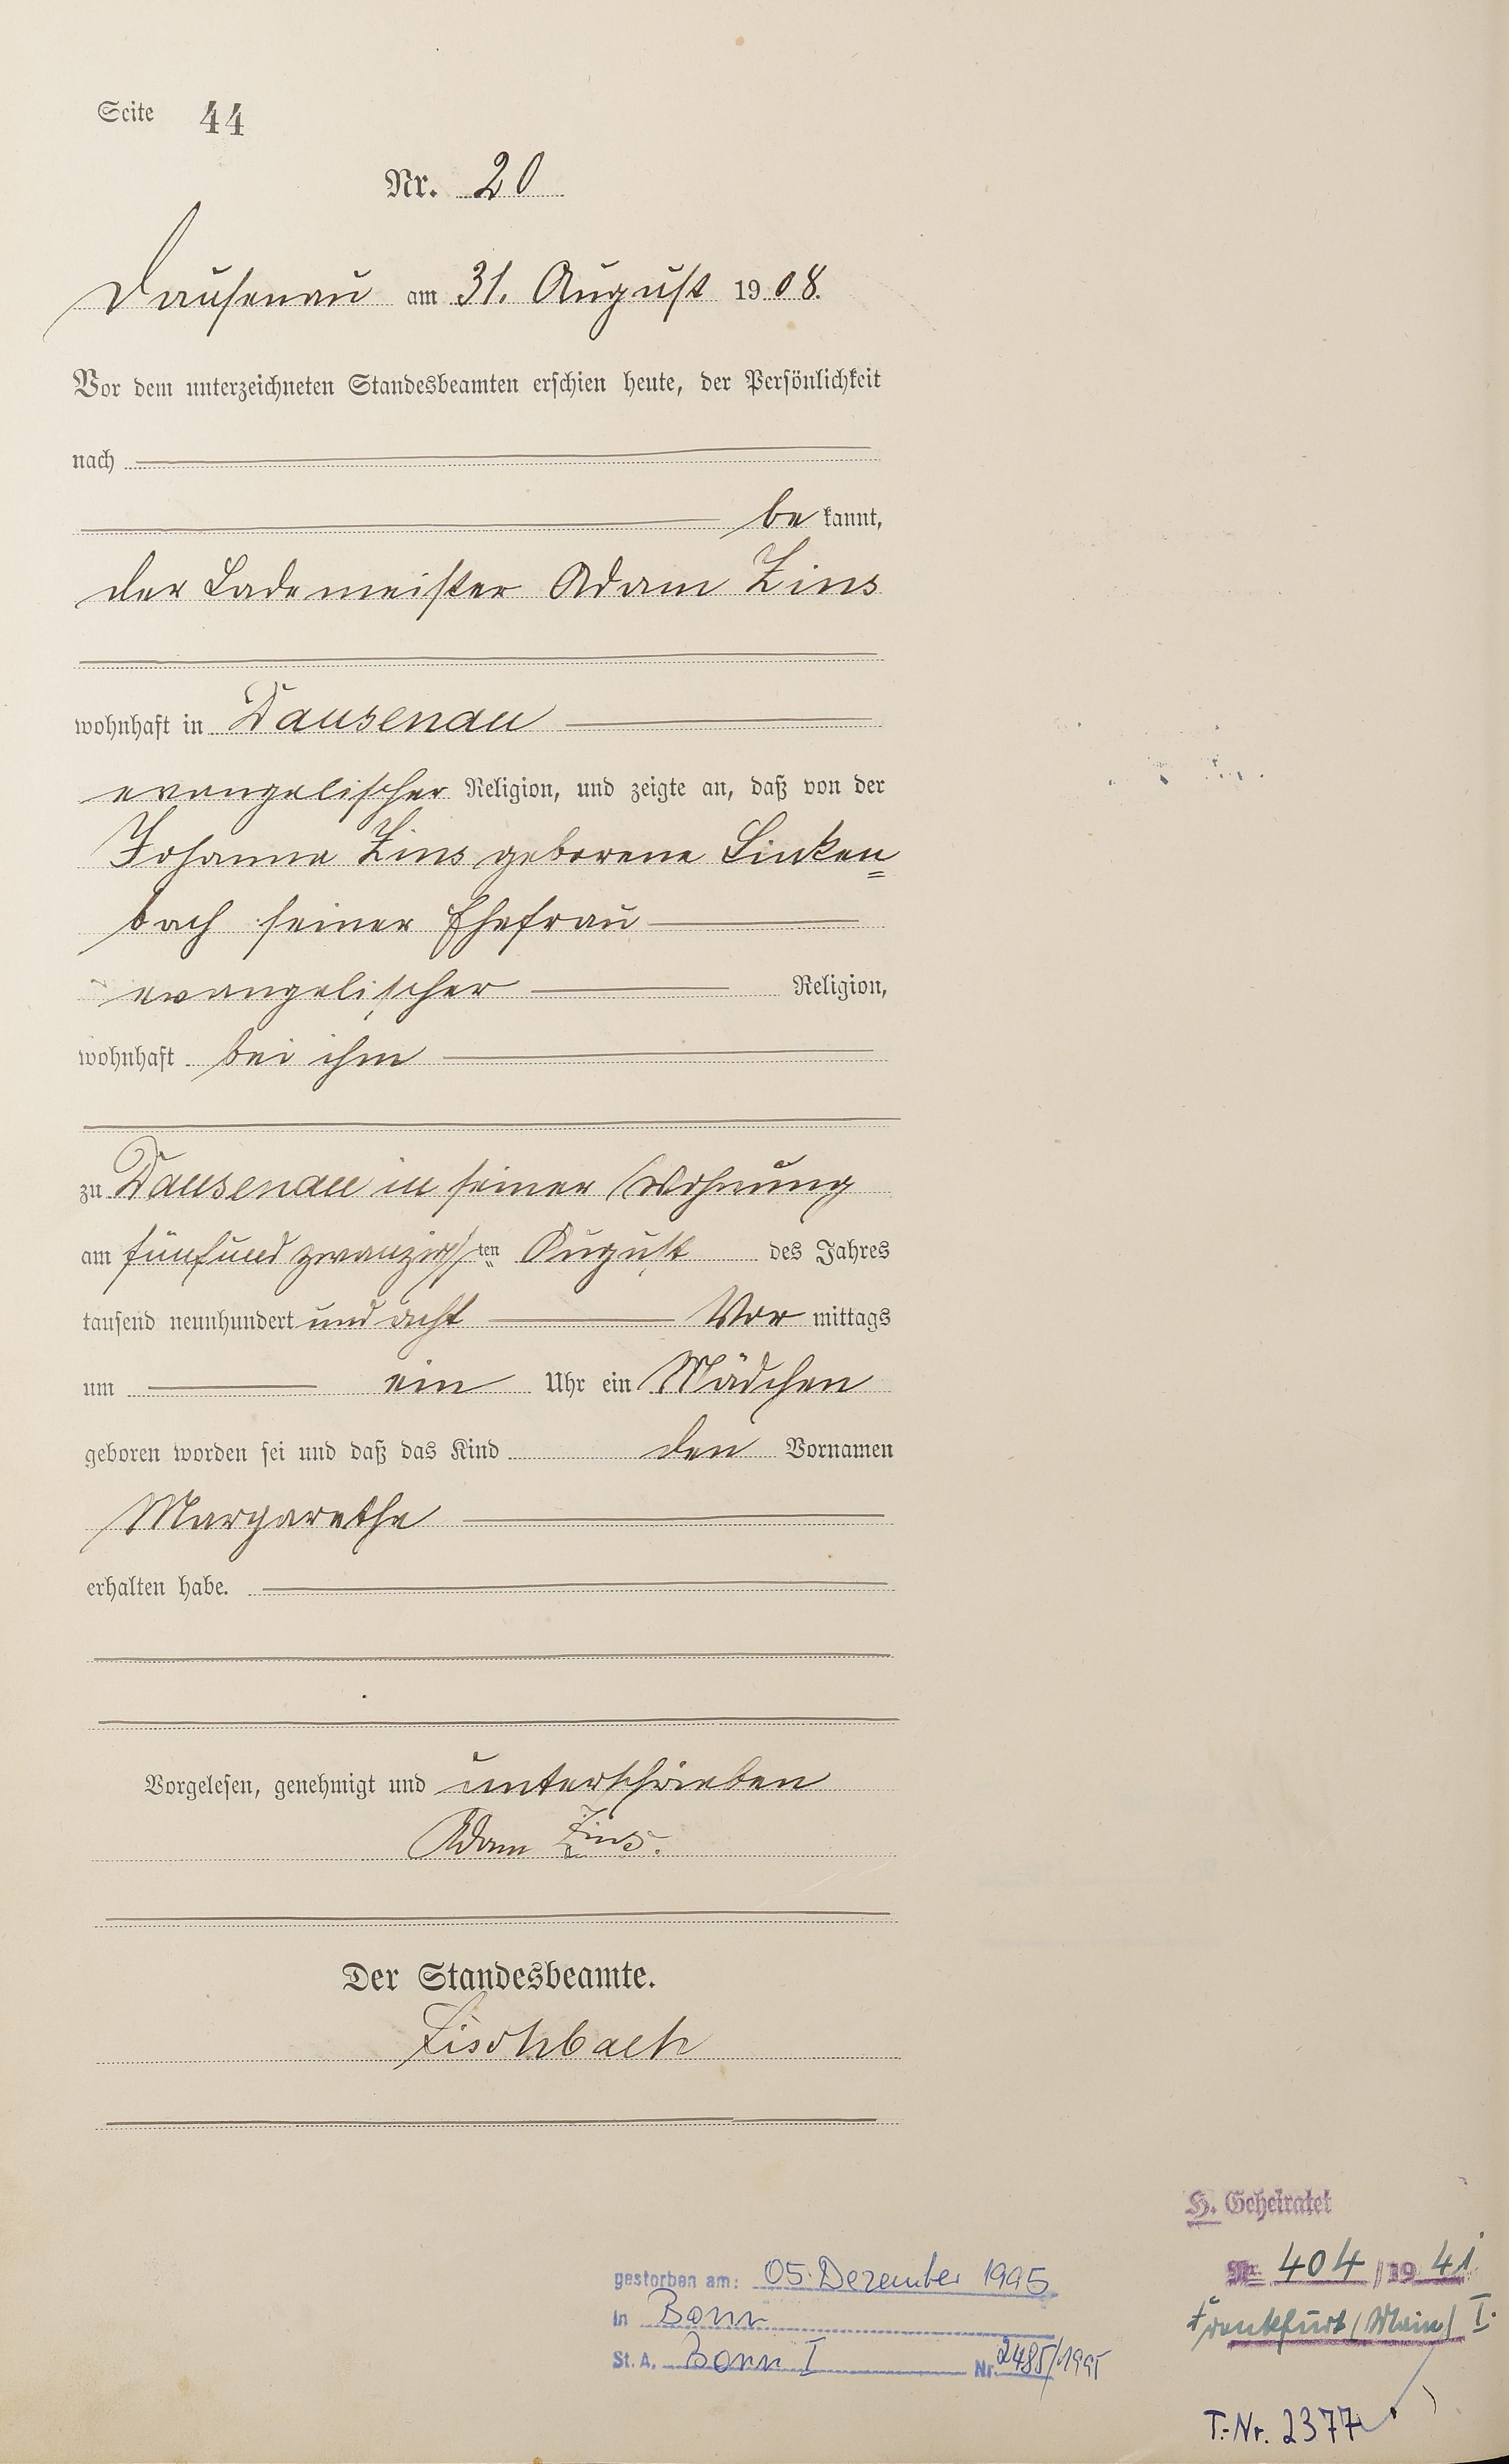 Seite 44
Nr. 20
Dausenau am 31. August 1908.
Vor dem unterzeichneten Standesbeamten erschien heute, der Persönlichkeit
nach
be kannt,
der Lademeister Adam Zins
wohnhaft in Dausenau
evangelischer Religion, und zeigte an, daß von der
Johanna Zins geborene Linken=
bach seiner Ehefrau
evangelischer Religion,
wohnhaft bei ihm
zu Dausenau in seiner Wohnung
am fünfundzwanzigsten August des Jahres
tausend neunhundert und acht Vor mittags
um ein Uhr ein Mädchen
geboren worden sei und daß das Kind den Vornamen
Margarethe
erhalten habe.
Vorgelesen, genehmigt und unterschrieben
Adam Zins.
Der Standesbeamte.
Fischbach
H. Geheiratet
Nr. 404/1941
Frankfurt (Main) I.
gestorben am: 05. Dezember 1995
in Bonn
St. A. Bonn I Nr. 2485/1995
T.-Nr. 2377